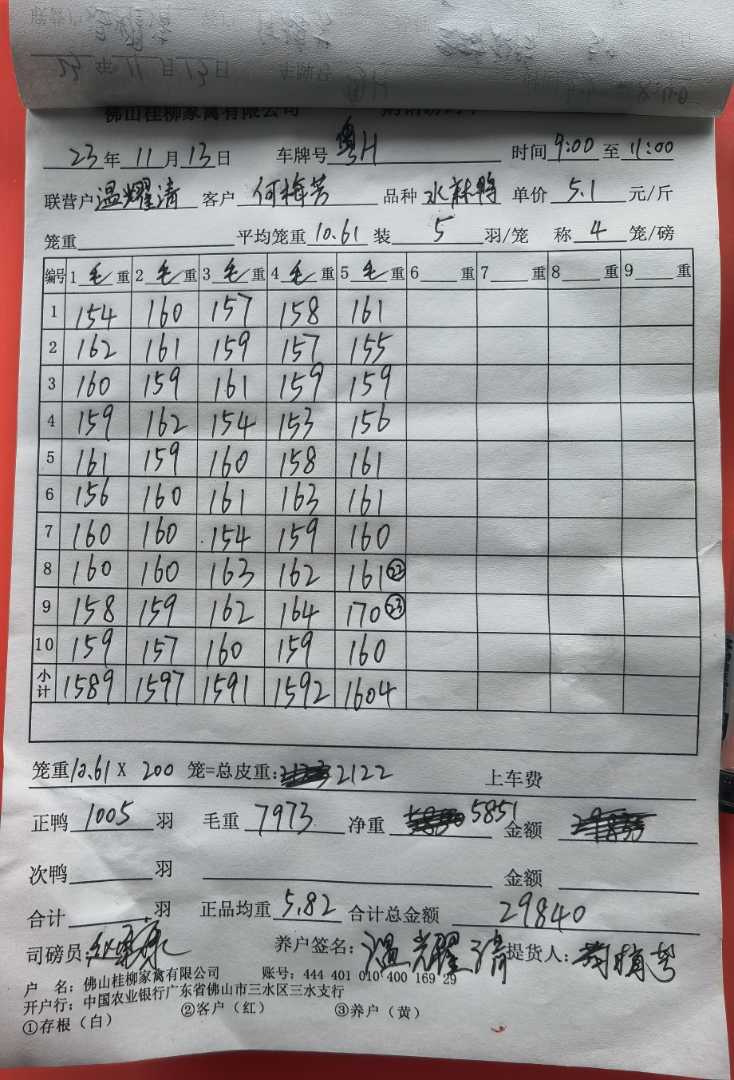 佛山桂柳家禽有限公司
23年 11月13日 车牌号 粤H 时间 9:00 至 11:00
联营户 温耀清 客户 何梅芳 品种 水麻鸭 单价 5.1 元/斤
笼重 平均笼重 10.61 装 5 羽/笼 称 4 笼/磅
编号 1 毛 重 2 毛 重 3 毛 重 4 毛 重 5 毛 重 6 重 7 重 8 重 9 重
1 154 160 157 158 161
2 162 161 159 157 155
3 160 159 161 159 159
4 159 162 154 153 156
5 161 159 160 158 161
6 156 160 161 163 161
7 160 160 154 159 160
8 160 160 163 162 161
9 158 159 162 164 170
10 159 157 160 159 160
小计 1589 1597 1591 1592 1604
笼重10.61 X 200 笼=总皮重: 2122 上车费
正鸭 1005 羽 毛重 7973 净重 5851 金额
次鸭 羽 金额
合计 羽 正品均重 5.82 合计总金额 29840
司磅员: 养户签名: 温耀清 提货人:
户 名: 佛山桂柳家禽有限公司 账号: 444 401 010 400 169 29
开户行: 中国农业银行广东省佛山市三水区三水支行
①存根（白） ②客户（红） ③养户（黄）